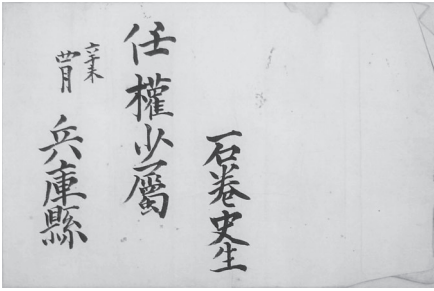 石卷史生
任權少屬
辛未
四月
兵庫縣